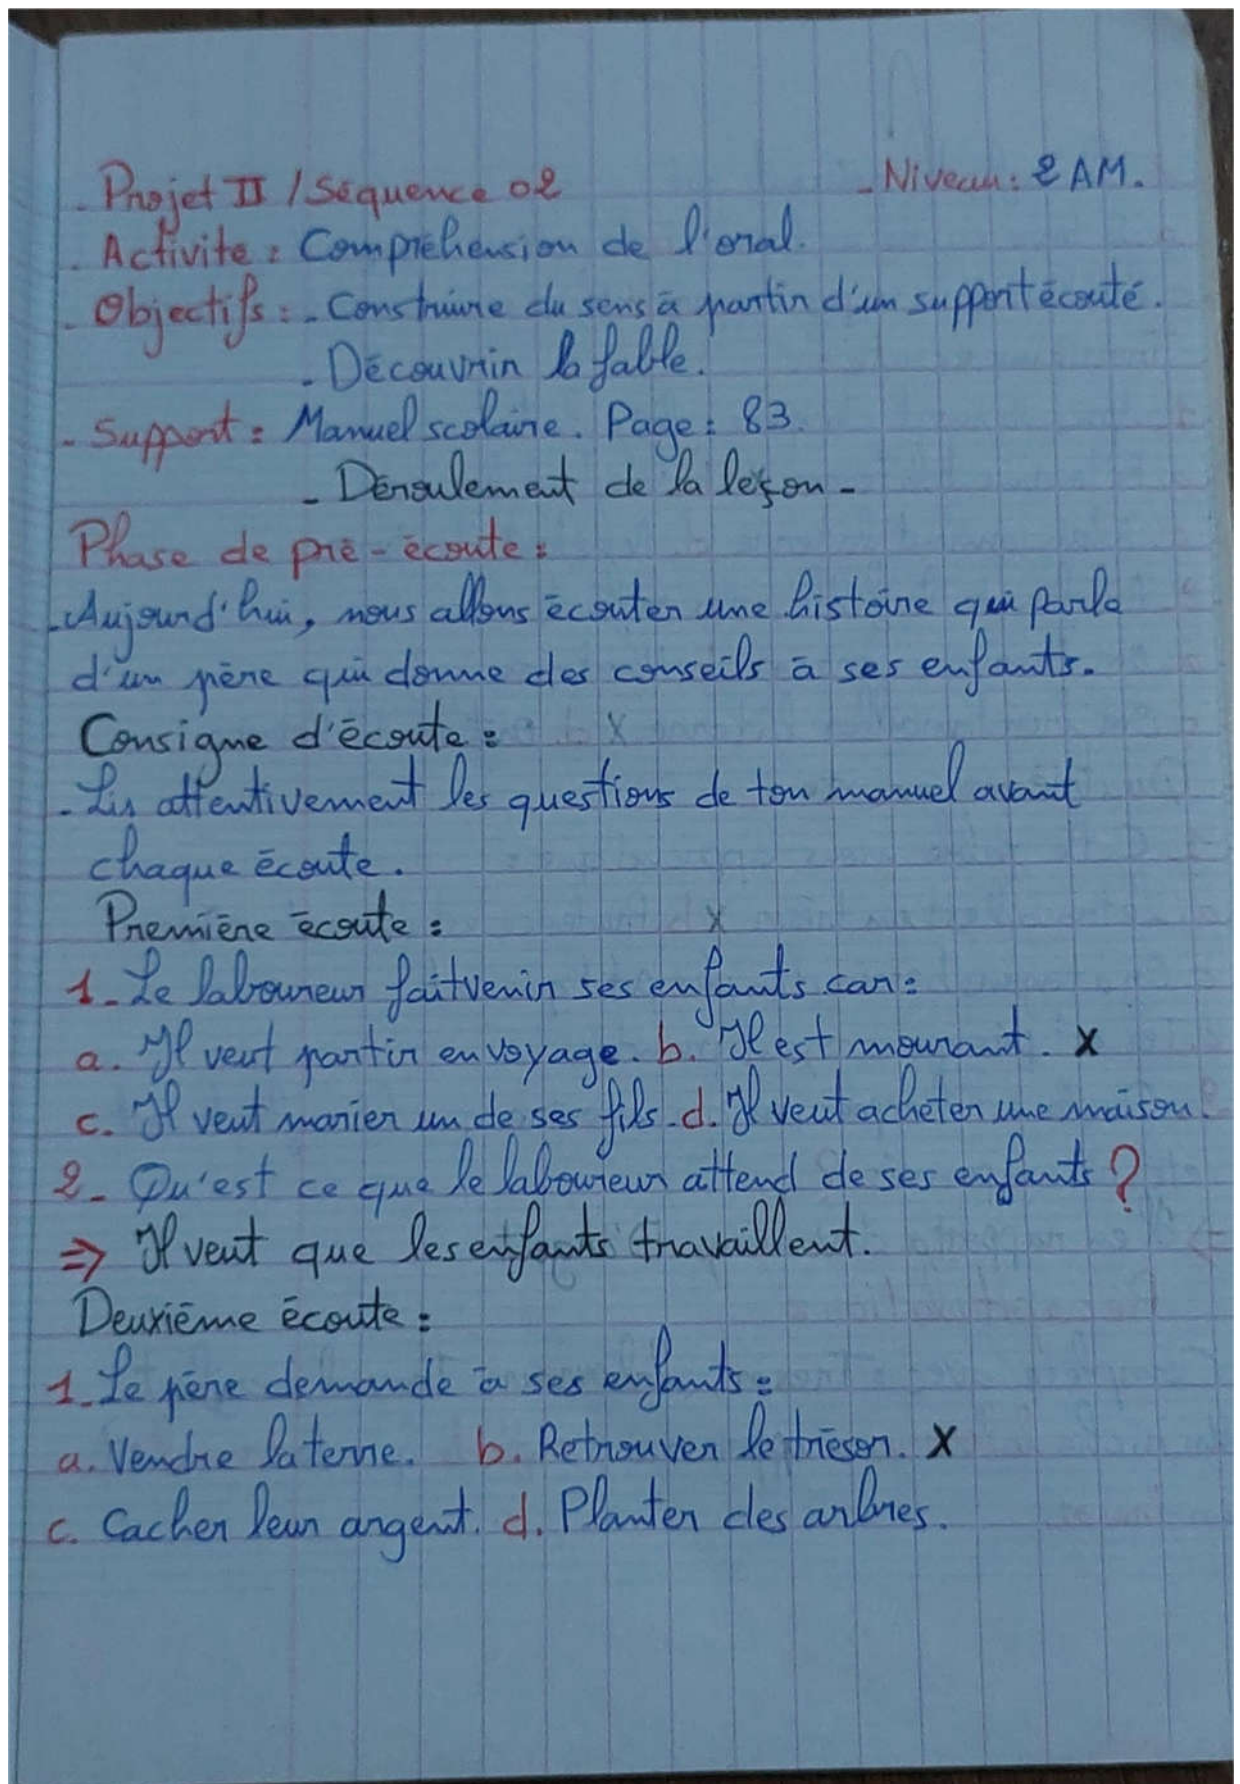 - Projet II / Séquence 02 - Niveau : 2 AM.
- Activité : Compréhension de l'oral.
- Objectifs : - Construire du sens à partir d'un support écouté.
- Découvrir la fable.
- Support : Manuel scolaire. Page : 83.
- Déroulement de la leçon -
Phase de pré-écoute :
- Aujourd'hui, nous allons écouter une histoire qui parle
d'un père qui donne des conseils à ses enfants.
Consigne d'écoute :
- Lis attentivement les questions de ton manuel avant
chaque écoute.
Première écoute :
1- Le laboureur fait venir ses enfants car :
a. Il veut partir en voyage. b. Il est mourant. X
c. Il veut marier un de ses fils. d. Il veut acheter une maison.
2- Qu'est ce que le laboureur attend de ses enfants ?
⇒ Il veut que les enfants travaillent.
Deuxième écoute :
1- Le père demande à ses enfants :
a. Vendre la terre. b. Retrouver le trésor. X
c. Cacher leur argent. d. Planter des arbres.